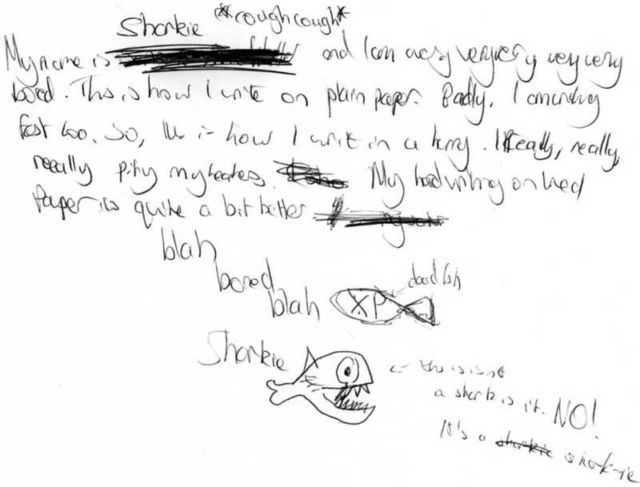 Sharkie *coughcough*
My name is and I am very very very very very
bored. This is how I write on plain paper. Badly. I am writing
fast too. So, this is how I write in a hurry. I Really, really,
really pity my teachers. My handwriting on lined
Paper is quite a bit better
blah
bored
blah XP dead fish
Sharkie
<- this is not
a shark is it. NO!
It's a sharkie shark-ie